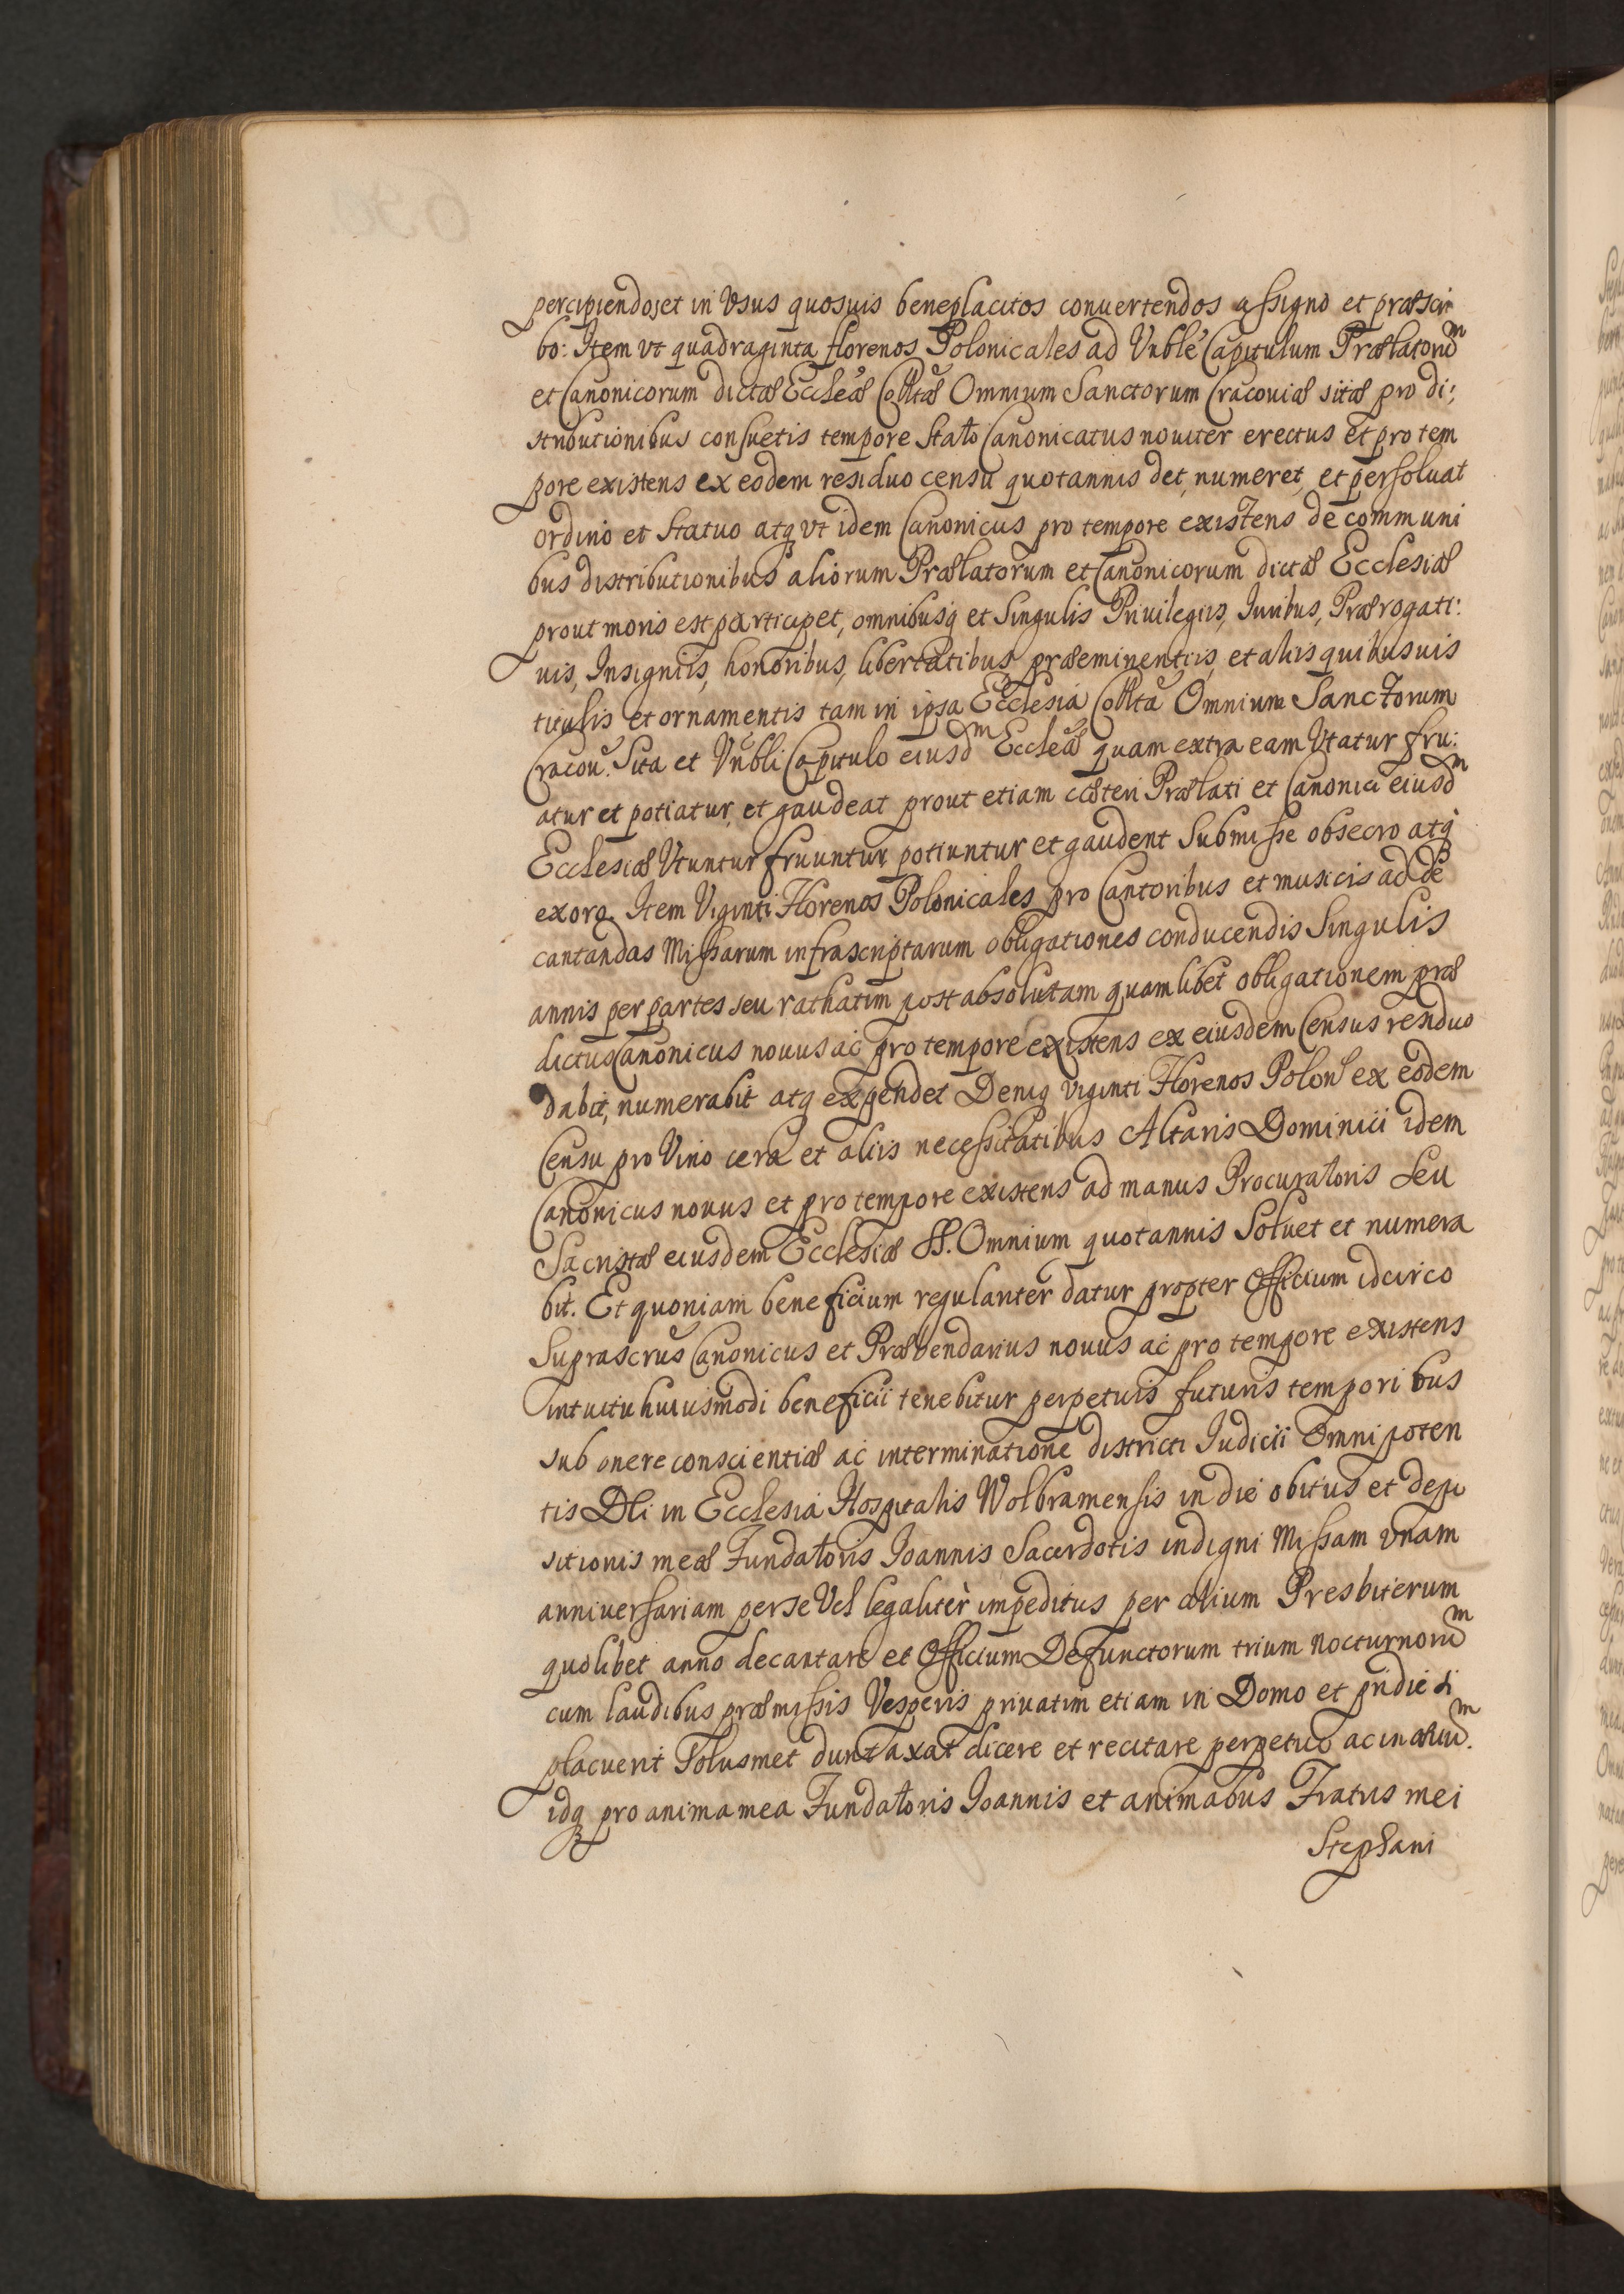 percipiendos et in Vsus quosuis beneplacitos conuertendos assigno et præscri
bo: Item vt quadraginta florenos Polonicales ad Vnble Capitulum Prælatorum
et Canonicorum dictæ Eccleæ Colltæ Omnium Sanctorum Cracouiæ sitæ pro di:
stributionibus consuetis tempore Stato Canonicatus nouiter erectus et pro tem
pore existens ex eodem residuo censu quotannis det, numeret, et persoluat
ordino et Statuo atq vt idem Canonicus pro tempore existens de communi
bus distributionibus aliorum Prælatorum et Canonicorum dictæ Ecclesiæ
prout moris est participet, omnibusq et Singulis Priuilegijs, Iuribus, Prærogati:
uis, Insignijs, honoribus, libertatibus præeminentijs, et alijs quibusuis
titulis et ornamentis tam in ipsa Ecclesia Collta Omnium Sanctorum
Cracou. Sita et Vnbli Capitulo eiusdm Eccleæ quam extra eam Vtatur fru:
atur et potiatur, et gaudeat prout etiam cæteri Prælati et Canonici eiusdm
Ecclesiæ Vtuntur fruuntur potiuntur et gaudent Submisse obsecro atq
exoro. Item Viginti Florenos Polonicales pro Cantoribus et musicis ad de
cantandas Missarum infrascriptarum obligationes conducendis Singulis
annis per partes seu rathatim post absolutam quamlibet obligationem præ
dictus Canonicus nouus ac pro tempore existens ex eiusdem Census residuo
dabit, numerabit atq expendet Deniq viginti Florenos Polon ex eodem
Censu pro Vino cera et alijs necessitatibus Altaris Dominici idem
Canonicus nouus et pro tempore existens ad manus Procuratoris Seu
Sacristæ eiusdem Ecclesiæ SS. Omnium quotannis Soluet et numera
bit. Et quoniam beneficium regulariter datur propter Officium idcirco
Suprascrus Canonicus et Præbendarius nouus ac pro tempore existens
intuitu huiusmodi beneficij tenebitur perpetuis futuris temporibus
sub onere conscientiæ ac interminatione districti Iudicij Omnipoten
tis DEi in Ecclesia Hospitalis Wolbramensis in die obitus et depo
sitionis meæ Fundatoris Ioannis Sacerdotis indigni Missam vnam
anniuersariam per se Vel legalitèr impeditus per alium Presbiterum
quolibet anno decantare et Officium Defunctorum trium Nocturnorum
cum laudibus præmissis Vesperis priuatim etiam in Domo et pridie si
placuerit Solusmet duntaxat dicere et recitare perpetuo ac in æuum.
idq pro anima mea Fundatoris Ioannis et animabus Fratris mei
Stephani